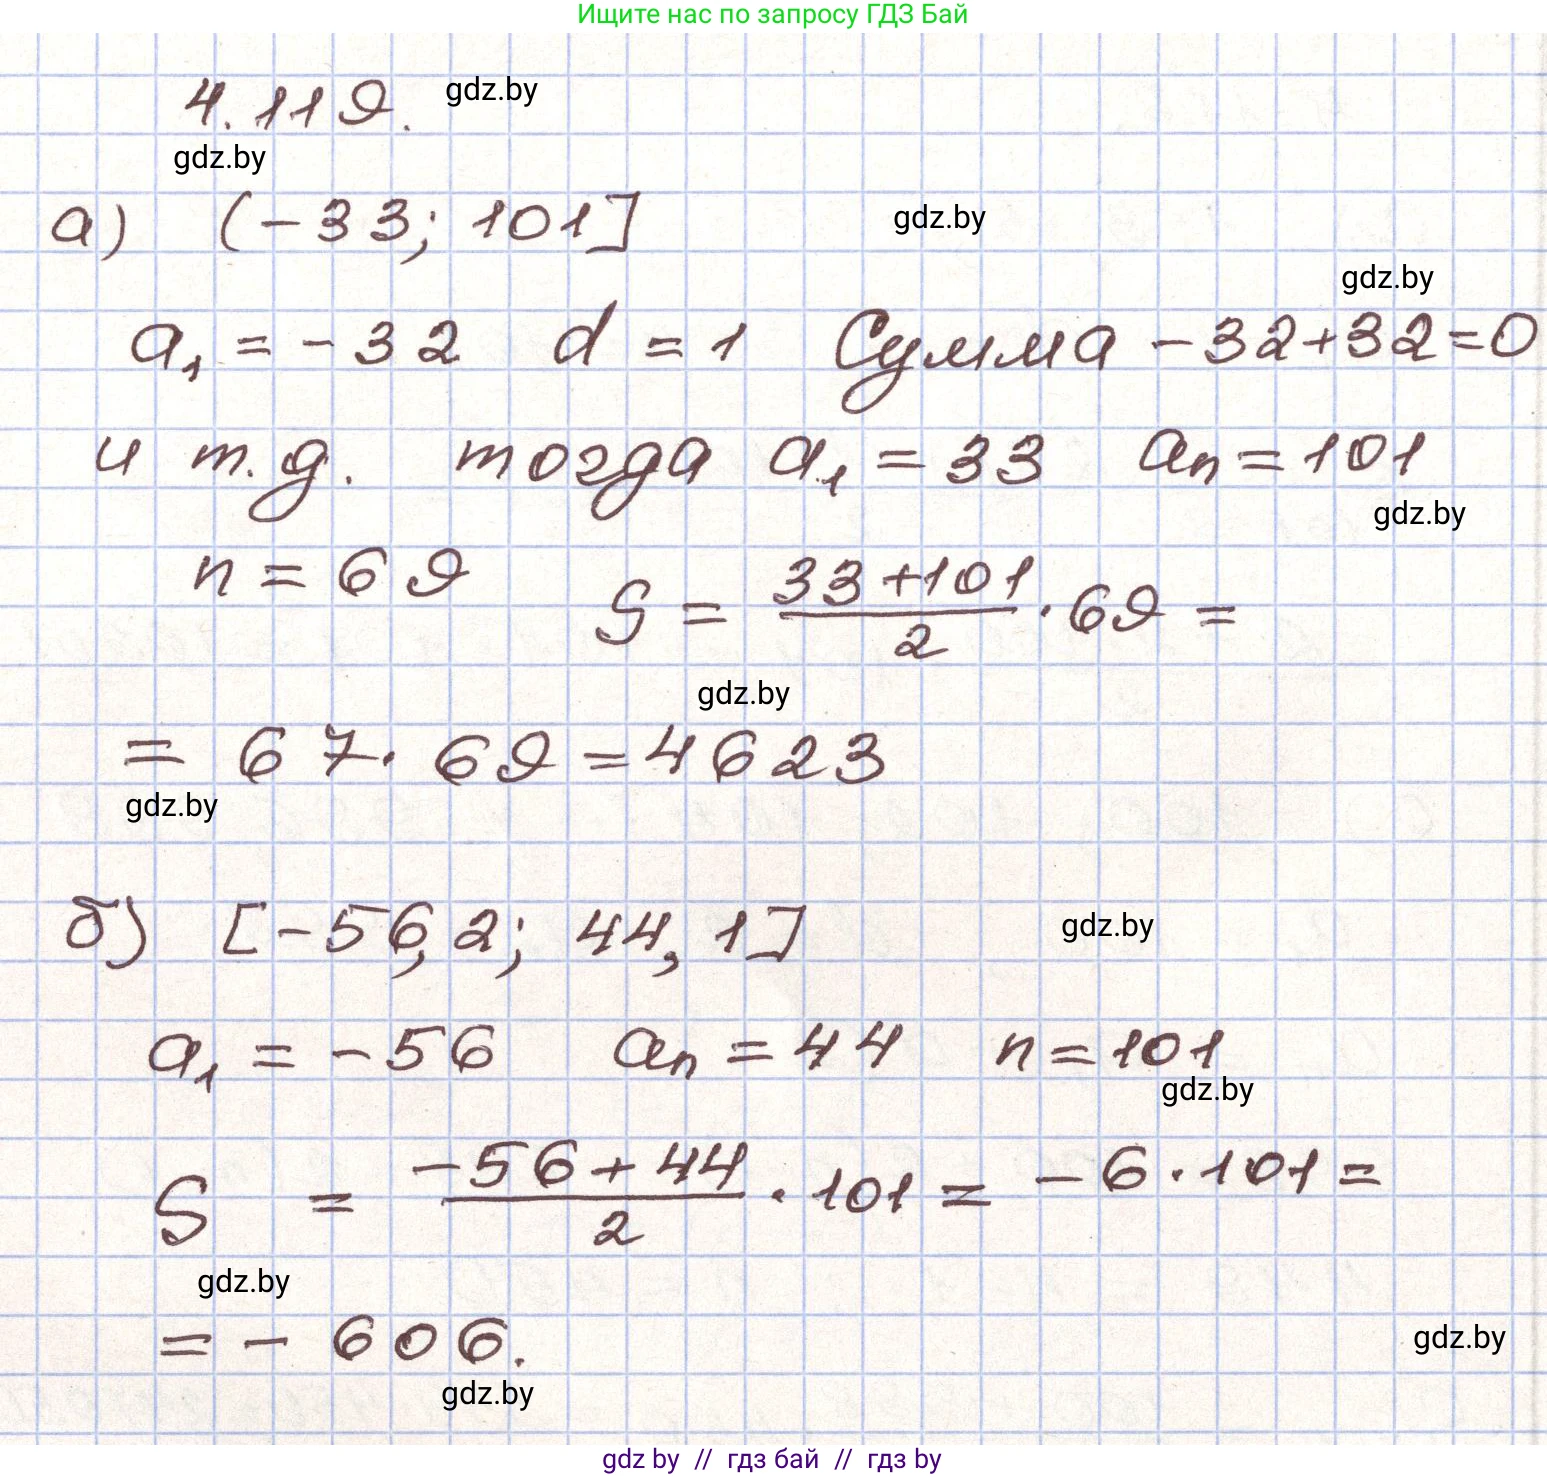 Ищите нас по запросу ГДЗ Бай
4.119. gdz.by
gdz.by
а) (-33; 101] gdz.by
gdz.by
a₁ = -32 d = 1 Сумма -32+32=0
и т.д. тогда a₁ = 33 aₙ = 101
gdz.by
n = 69 S = (33+101)/2 · 69 =
gdz.by
= 67 · 69 = 4623
gdz.by
б) [-56,2; 44,1] gdz.by
a₁ = -56 aₙ = 44 n = 101
gdz.by
S = (-56+44)/2 · 101 = -6 · 101 =
gdz.by
= - 606. gdz.by
gdz.by
gdz by // гдз бай // гдз by